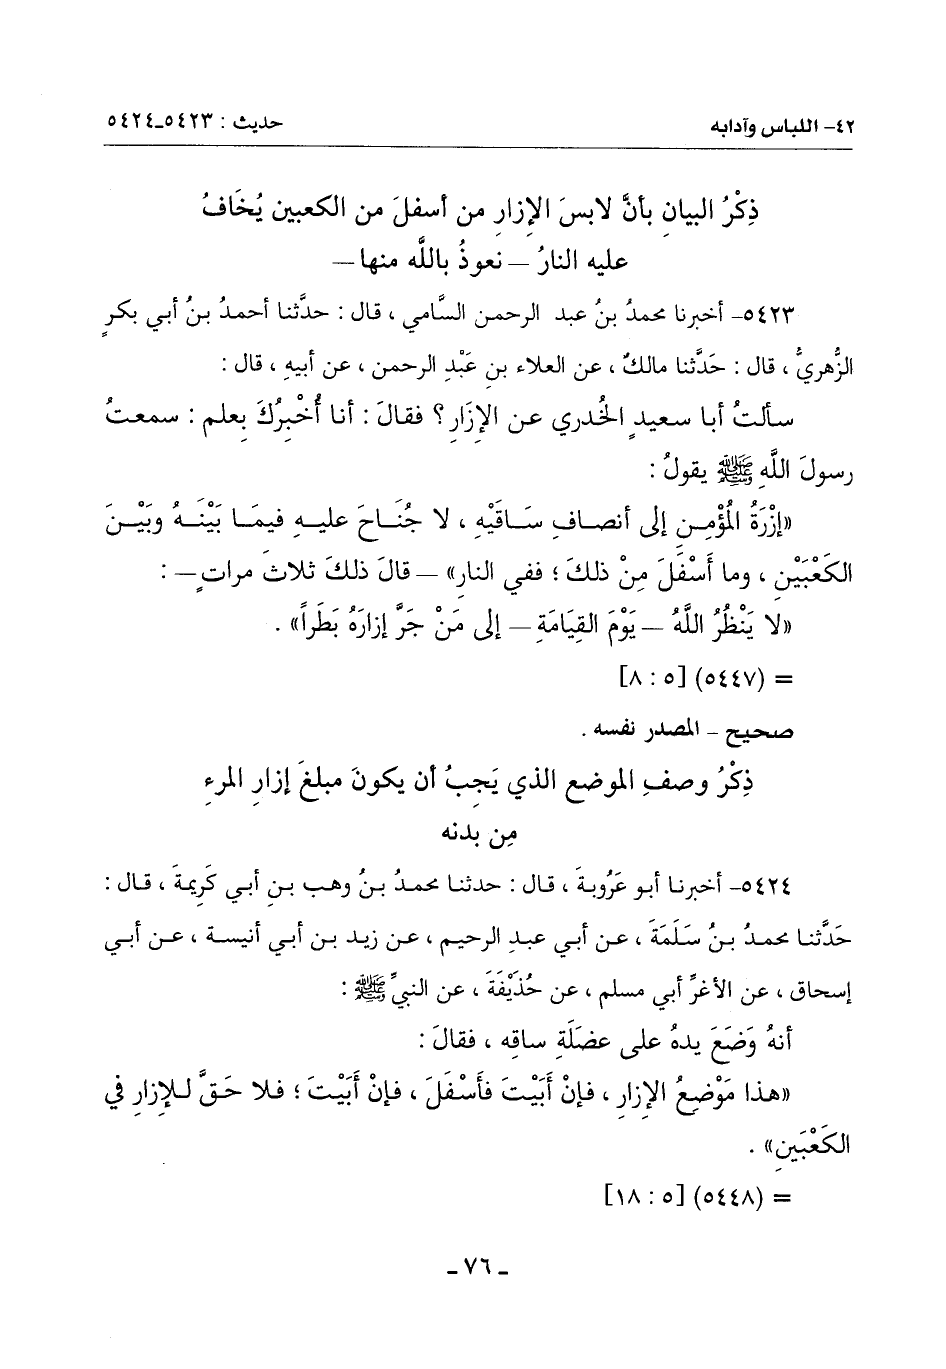 ٤٢- اللباس وآدابه
حديث : ٥٤٢٣ـ٥٤٢٤
ذِكْرُ البيانِ بأنَّ لابسَ الإزارِ من أسفلَ من الكعبين يُخَافُ
عليه النارُ – نعوذُ باللَّه منها–
٥٤٢٣- أخبرنا محمدُ بنُ عبد الرحمن السَّامي ، قال : حدَّثنا أحمدُ بنُ أبي بكرٍ
الزُّهريُّ ، قال : حَدَّثنا مالكٌ ، عن العلاء بنِ عَبْدِ الرحمن ، عن أبيهِ ، قال :
سألتُ أبا سعيدٍ الخُدري عن الإزَارِ ؟ فقالَ : أنا أُخْبِرُكَ بعلمٍ : سمعتُ
رسولَ اللَّهِ ﷺ يقولُ :
«إزْرَةُ المُؤْمِنِ إلى أنصافِ سَاقَيْهِ ، لا جُنَاحَ عليهِ فيمَا بَيْنَهُ وبَيْنَ
الكَعْبَيْنِ ، وما أَسْفَلَ مِنْ ذلكَ ؛ ففي النار» – قالَ ذلكَ ثلاثَ مراتٍ– :
«لا يَنْظُرُ اللَّهُ – يَوْمَ القِيَامَةِ – إلى مَنْ جَرَّ إزارَهُ بَطَراً» .
= (٥٤٤٧) [٥ : ٨]
صحيح - المصدر نفسه .
ذِكْرُ وصفِ الموضعِ الذي يَجِبُ أن يكونَ مبلغَ إزارِ المرءِ
مِن بدنه
٥٤٢٤- أخبرنا أبو عَرُوبةَ ، قال : حدثنا محمدُ بنُ وهب بنِ أبي كَرِيمةَ ، قال :
حَدَّثنا محمدُ بنُ سَلَمَةَ ، عن أبي عبدِ الرحيم ، عن زيد بن أبي أنيسة ، عن أبي
إسحاق ، عن الأغرِّ أبي مسلم ، عن حُذَيْفَةَ ، عن النبيِّ ﷺ :
أنهُ وَضَعَ يدهُ على عضَلَةِ ساقِه ، فقالَ :
«هذا مَوْضِعُ الإزارِ ، فإنْ أَبَيْتَ فأَسْفَلَ ، فإنْ أَبَيْتَ ؛ فلا حَقَّ للإزارِ في
الكَعْبَينِ» .
= (٥٤٤٨) [٥ : ١٨]
ـ ٧٦ ـ